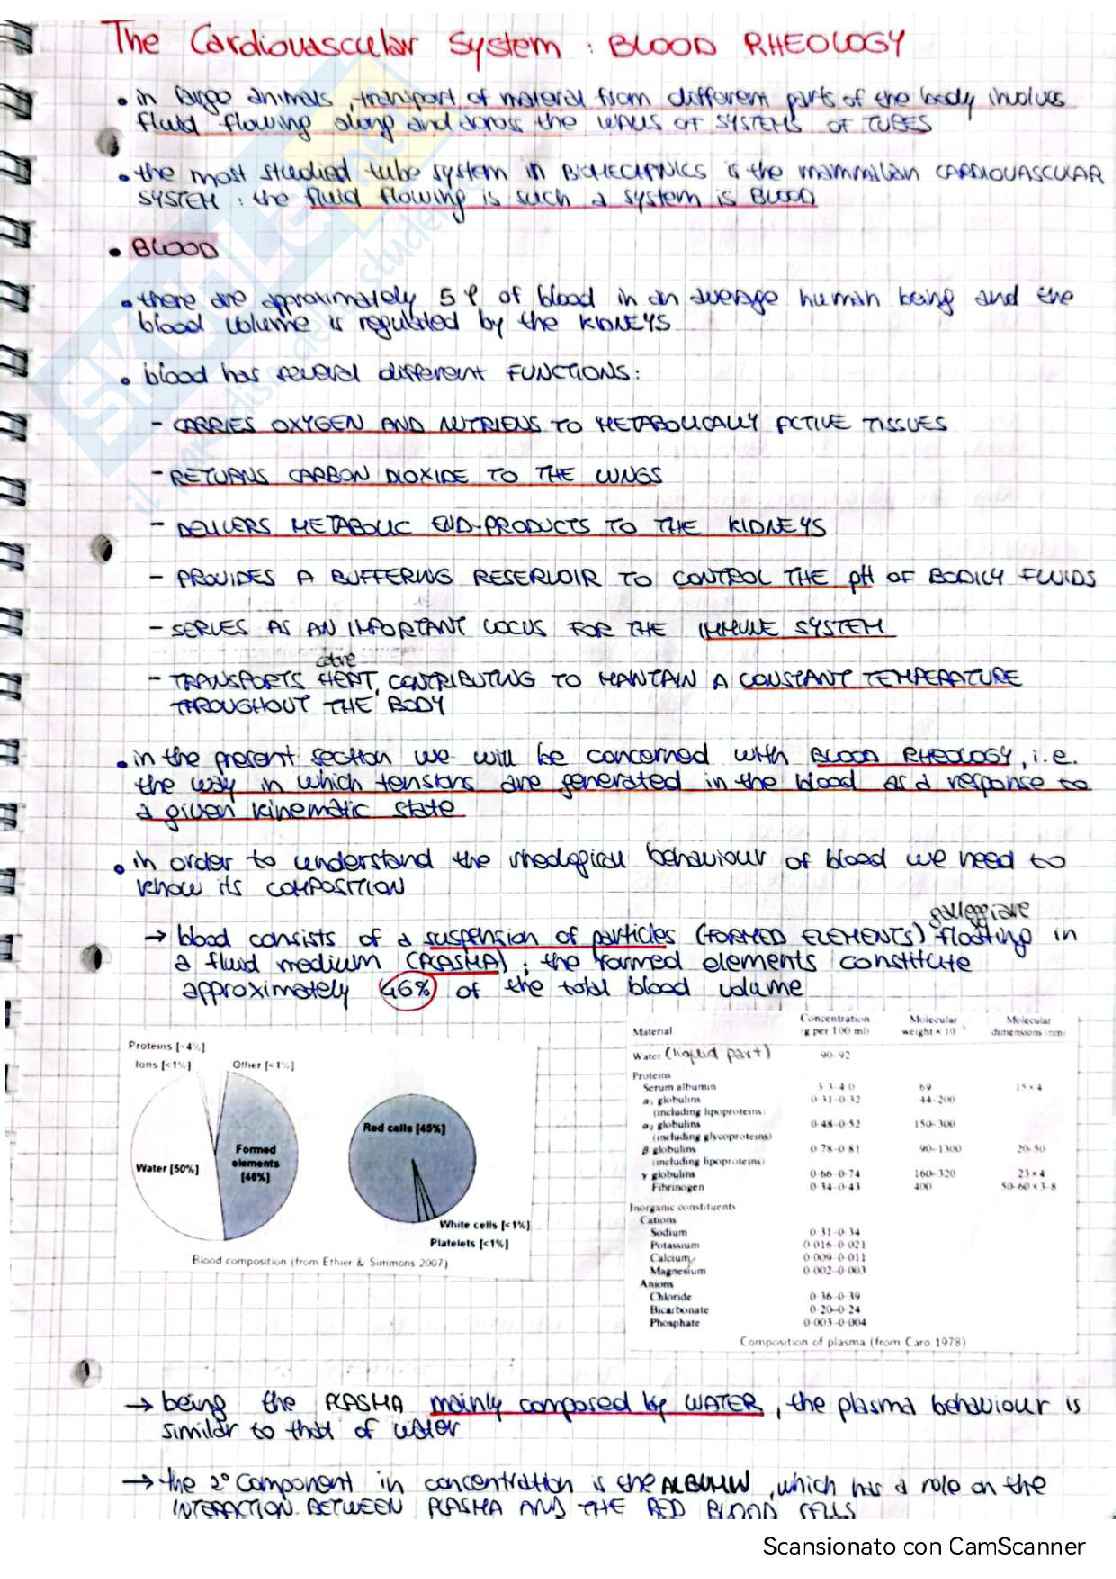 The Cardiovascular System: BLOOD RHEOLOGY
• in large animals, transport of material from different parts of the body involves
fluid flowing along and across the walls of SYSTEMS OF TUBES
• the most studied tube system in BIOMECHANICS is the mammilian CARDIOVASCULAR
SYSTEM: the fluid flowing is such a system is BLOOD
• BLOOD
• there are approximately 5 l of blood in an average human being and the
blood volume is regulated by the KIDNEYS
• blood has several different FUNCTIONS:
- CARRIES OXYGEN AND NUTRIENS TO METABOLICALLY ACTIVE TISSUES
- RETURNS CARBON DIOXIDE TO THE LUNGS
- DELIVERS METABOLIC END-PRODUCTS TO THE KIDNEYS
- PROVIDES A BUFFERING RESERVOIR TO CONTROL THE pH OF BODILY FLUIDS
- SERVES AS AN IMPORTANT LOCUS FOR THE IMMUNE SYSTEM
- TRANSPORTS HEAT, CONTRIBUTING TO MANTAIN A CONSTANT TEMPERATURE
THROUGHOUT THE BODY
• in the present section we will be concerned with BLOOD RHEOLOGY, i.e.
the way in which tensions are generated in the blood as a response to
a given kinematic state
• in order to understand the rheological behaviour of blood we need to
know its COMPOSITION
galleggiare
→ blood consists of a suspension of particles (FORMED ELEMENTS) floating in
a fluid medium (PLASMA); the formed elements constitute
approximately 46% of the total blood volume
Proteins [~4%]
Ions [<1%] Other [<1%]
Formed
elements
[46%]
Water [50%]
Red cells [45%]
White cells [<1%]
Platelets [<1%]
Blood composition (from Ethier & Simmons 2007)
Concentration Molecular Molecular
Material g per 100 ml) weight × 10 dimensions (nm)
Water (liquid part) 90-92
Proteins
Serum albumin 3·3-4·0 69 15 × 4
α₁ globulins 0·31-0·32 44-200
(including lipoproteins)
α₂ globulins 0·48-0·52 150-300
(including glycoproteins)
β globulins 0·78-0·81 90-1300 20-50
(including lipoproteins)
γ globulins 0·66-0·74 160-320 23 × 4
Fibrinogen 0·34-0·43 400 50-60 × 3-8
Inorganic constituents
Cations
Sodium 0·31-0·34
Potassium 0·016-0·021
Calcium 0·009-0·011
Magnesium 0·002-0·003
Anions
Chloride 0·36-0·39
Bicarbonate 0·20-0·24
Phosphate 0·003-0·004
Composition of plasma (from Caro 1978)
→ being the PLASMA mainly composed by WATER, the plasma behaviour is
similar to that of water
→ the 2° component in concentration is the ALBUMIN, which has a role on the
INTERACTION BETWEEN PLASMA AND THE RED BLOOD CELLS
Scansionato con CamScanner